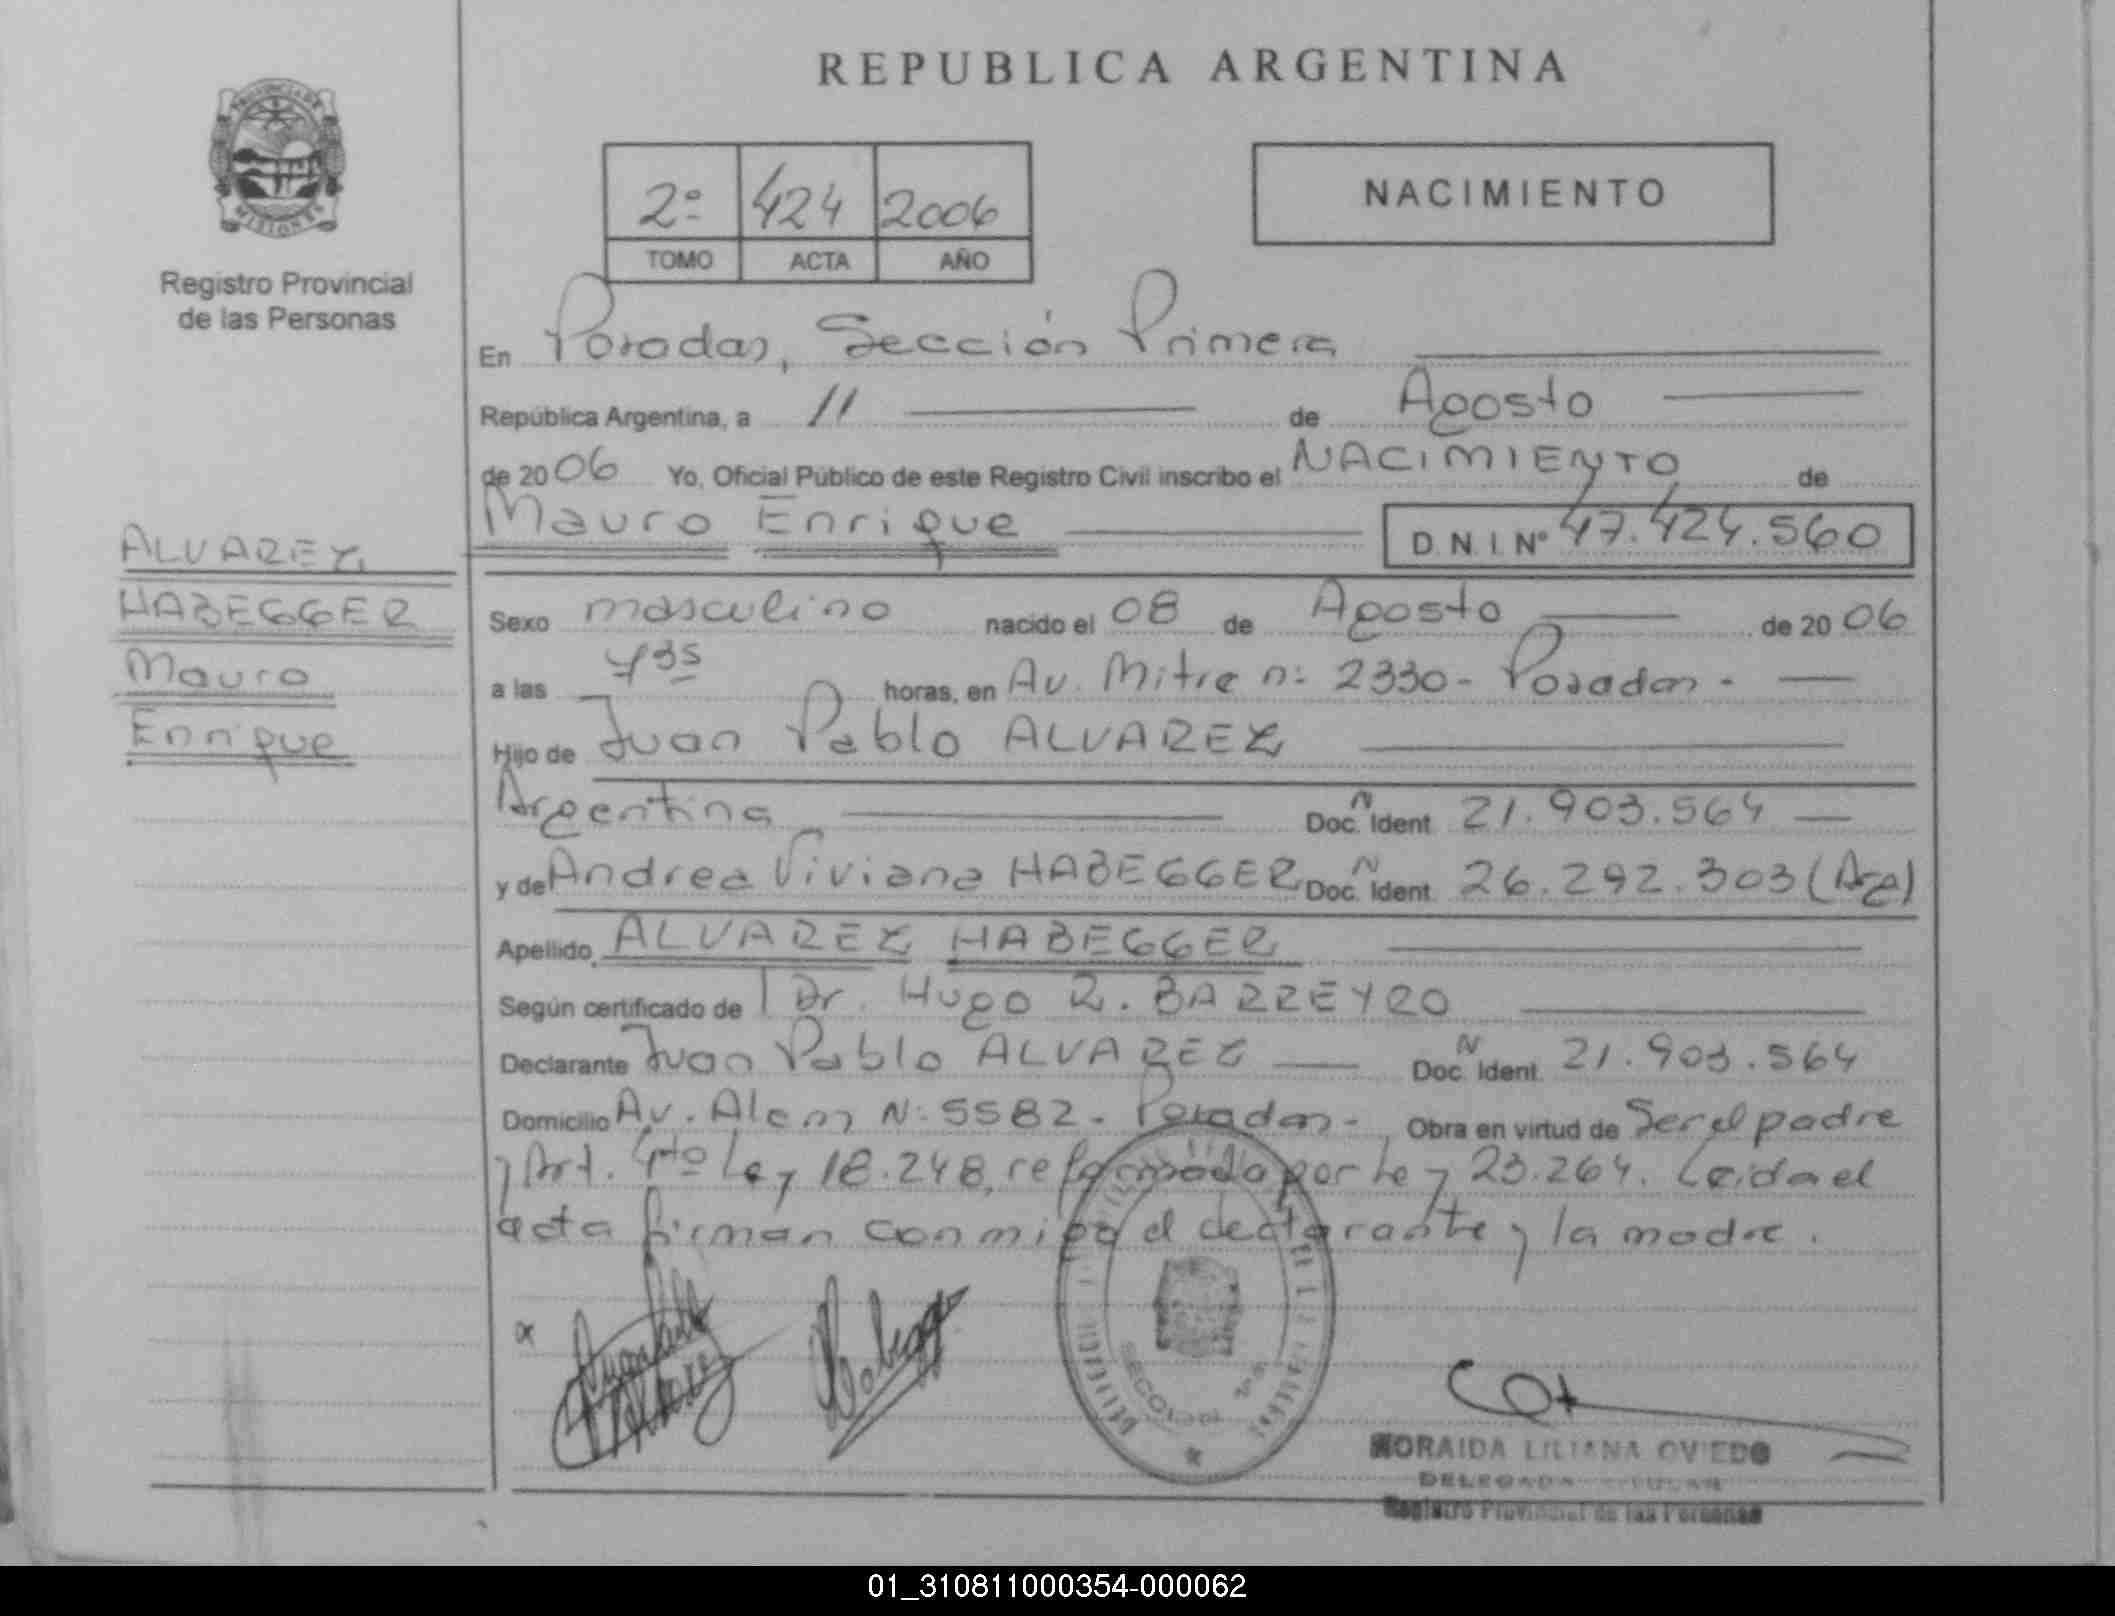 REPUBLICA ARGENTINA
PROVINCIA DE
MISIONES
Registro Provincial
de las Personas
2º 424 2006
TOMO ACTA AÑO
NACIMIENTO
En Posadas, Sección Primera
República Argentina, a 11 de Agosto
de 2006 Yo, Oficial Público de este Registro Civil inscribo el NACIMIENTO de
Mauro Enrique D.N.I. Nº 47.424.560
ALVAREZ
HABEGGER
Mauro
Enrique
Sexo masculino nacido el 08 de Agosto de 2006
a las 4 35 horas, en Av. Mitre nº 2330 - Posadas -
Hijo de Juan Pablo ALVAREZ
Argentina Doc. Ident. N 21.903.564
y de Andrea Viviana HABEGGER Doc. Ident. N 26.292.303 (Arg)
Apellido ALVAREZ HABEGGER
Según certificado de Dr. Hugo R. BARREYRO
Declarante Juan Pablo ALVAREZ Doc. Ident. N 21.903.564
Domicilio Av. Alem Nº 5582 - Posadas - , Obra en virtud de Ser el padre
y Art. 4to Ley 18.248, reformada por ley 23.264. Leida el
acta firman conmigo el declarante y la madre.
SECCION
NORAIDA LILIANA OVIEDO
DELEGADA TITULAR
Registro Provincial de las Personas
01_310811000354-000062